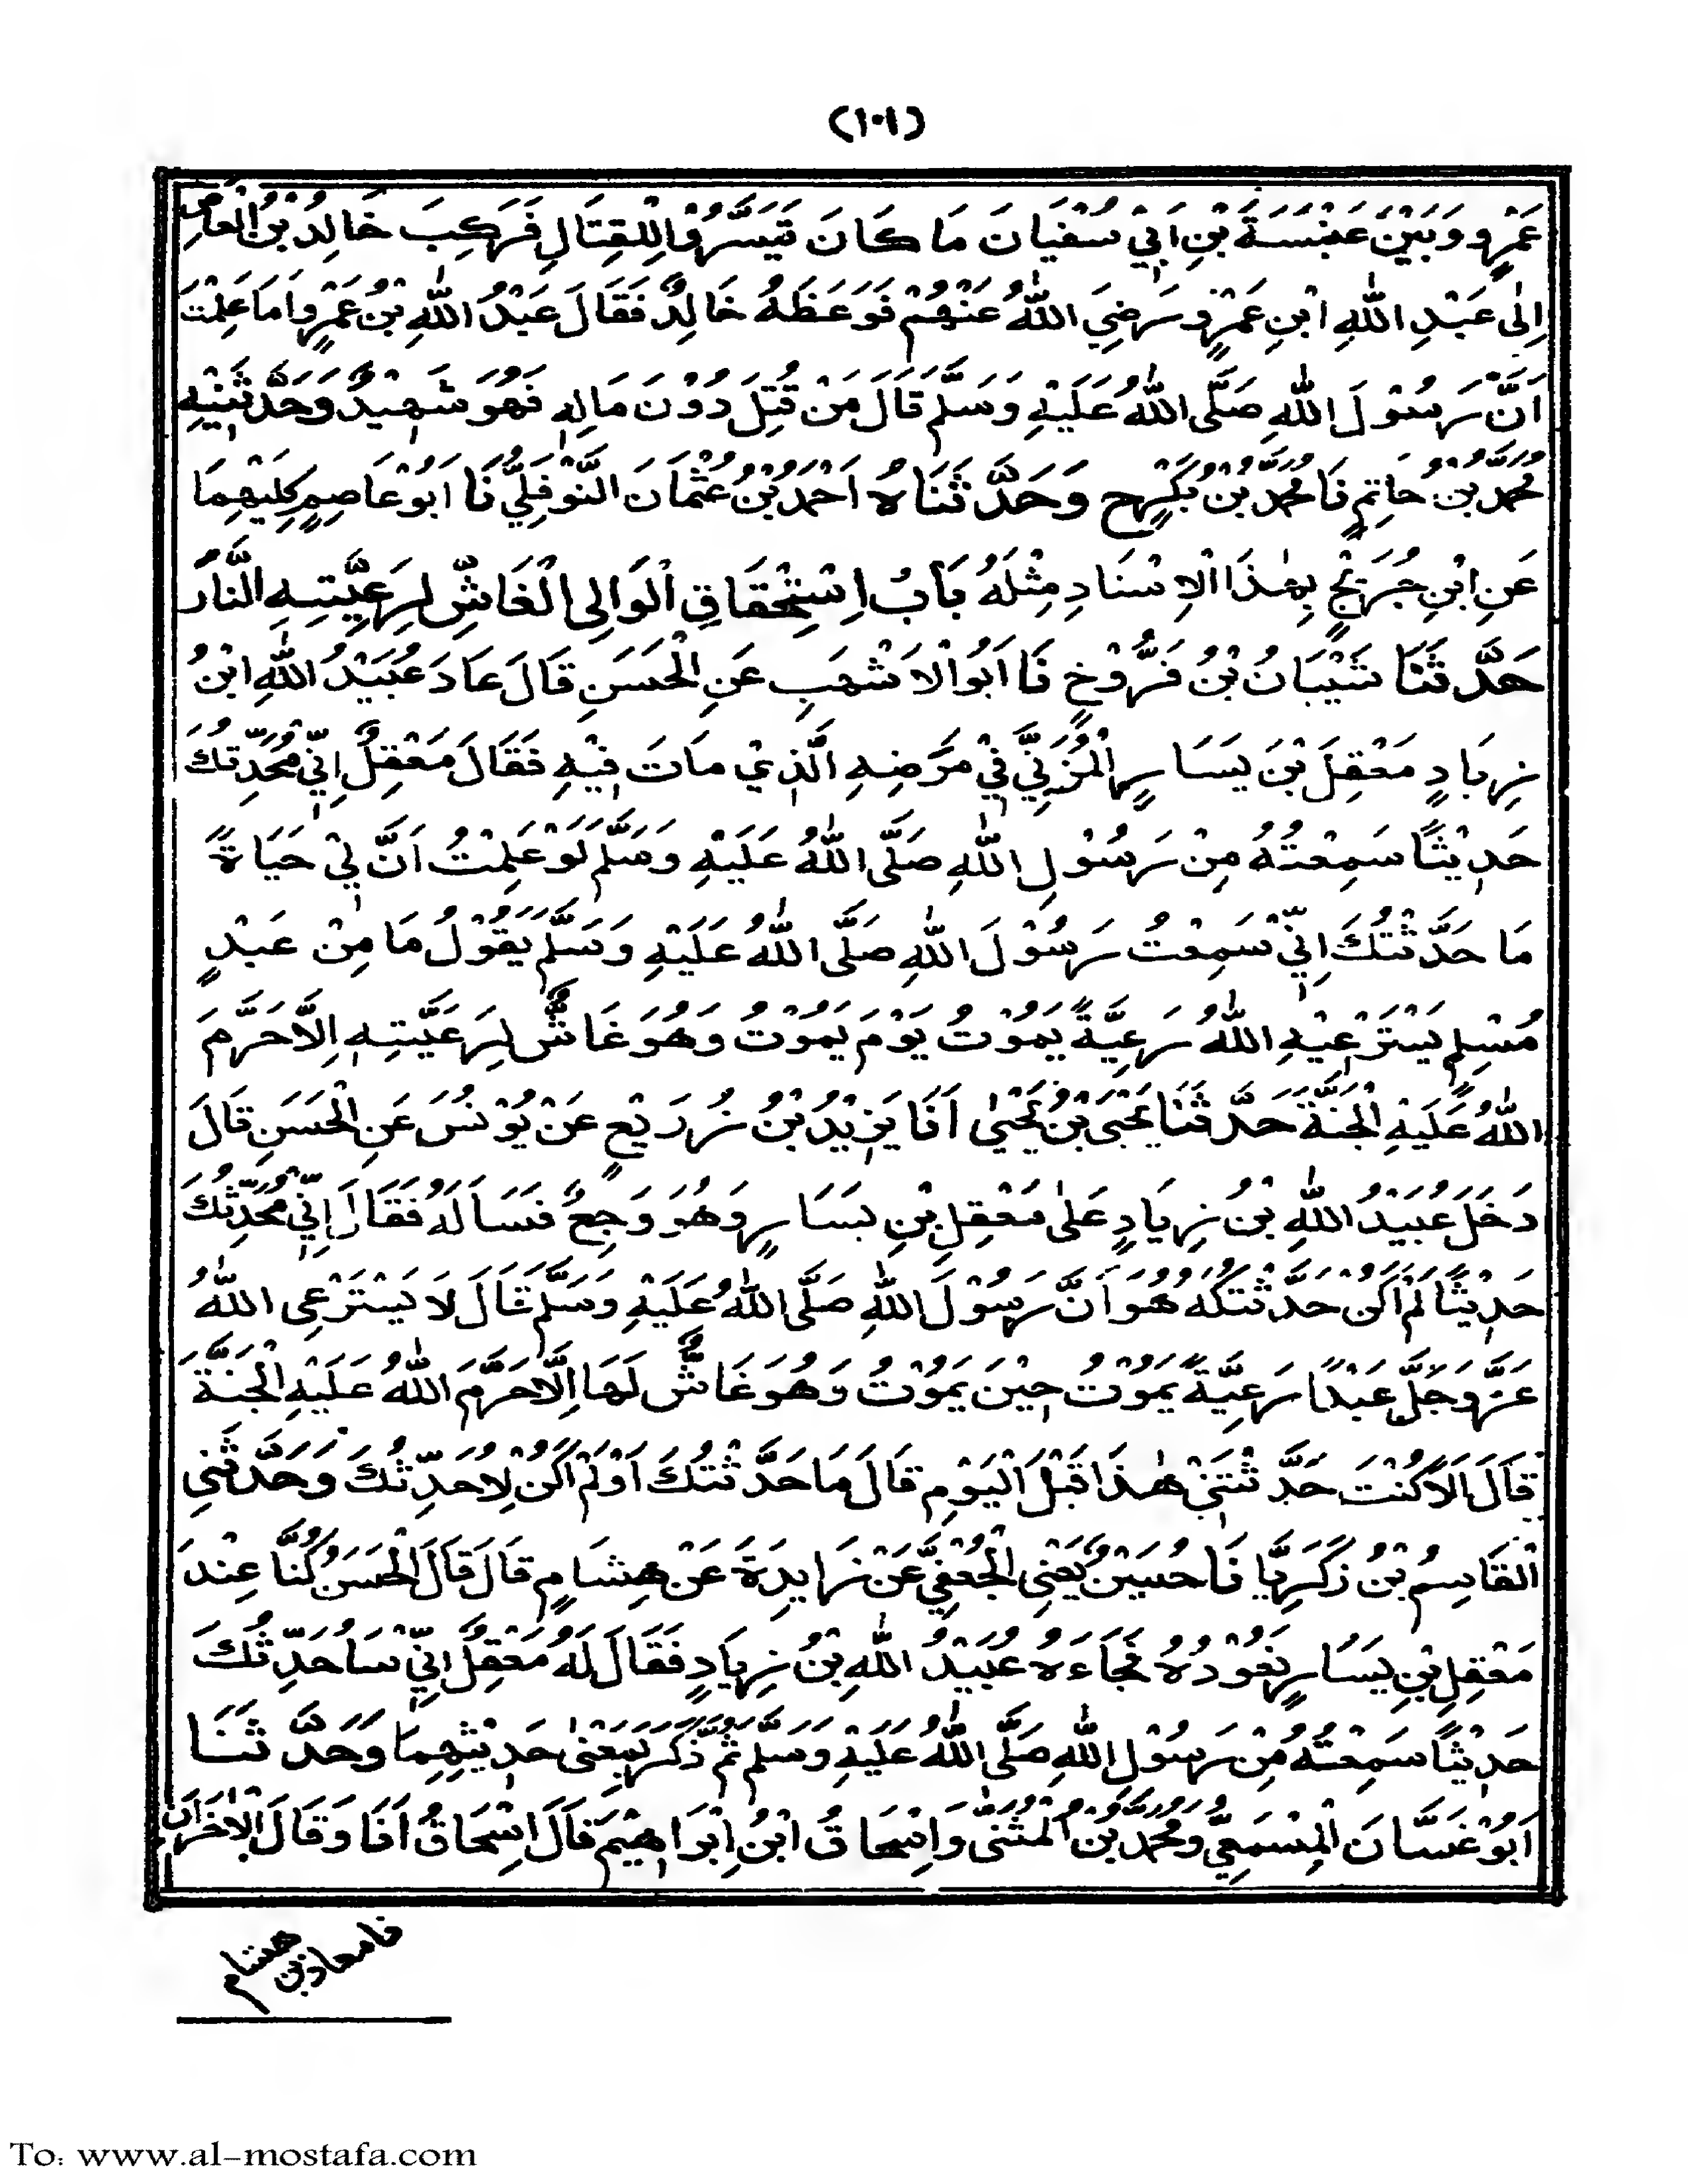 (١٠١)
عَمْرٍو وَبَيْنَ عَنْبَسَةَ بْنِ اَبِيْ سُفْيَانَ مَا كَانَ تَيَسَّرُوْا لِلْقِتَالِ فَرَكِبَ خَالِدُ بْنُ الْعَاصِ
اِلٰى عَبْدِ اللّٰهِ ابْنِ عَمْرٍو رَضِيَ اللّٰهُ عَنْهُمْ فَوَعَظَهُ خَالِدٌ فَقَالَ عَبْدُ اللّٰهِ بْنُ عَمْرٍو اَمَا عَلِمْتَ
اَنَّ رَسُوْلَ اللّٰهِ صَلَّى اللّٰهُ عَلَيْهِ وَسَلَّمَ قَالَ مَنْ قُتِلَ دُوْنَ مَالِهٖ فَهُوَ شَهِيْدٌ وَحَدَّثَنِيْهِ
مُحَمَّدُ بْنُ حَاتِمٍ نَا مُحَمَّدُ بْنُ بَكْرٍ ح وَحَدَّثَنَاهُ اَحْمَدُ بْنُ عُثْمَانَ النَّوْفَلِيُّ نَا اَبُوْ عَاصِمٍ كِلَيْهِمَا
عَنِ ابْنِ جُرَيْجٍ بِهٰذَا الْاِسْنَادِ مِثْلَهُ بَابُ اِسْتِحْقَاقِ الْوَالِى الْغَاشِّ لِرَعِيَّتِهِ النَّارَ
حَدَّثَنَا شَيْبَانُ بْنُ فَرُّوْخٍ نَا اَبُو الْاَشْهَبِ عَنِ الْحَسَنِ قَالَ عَادَ عُبَيْدُ اللّٰهِ ابْنُ
زِيَادٍ مَعْقِلَ بْنَ يَسَارٍ الْمُزَنِيَّ فِيْ مَرَضِهِ الَّذِيْ مَاتَ فِيْهِ فَقَالَ مَعْقِلٌ اِنِّيْ مُحَدِّثُكَ
حَدِيْثًا سَمِعْتُهُ مِنْ رَسُوْلِ اللّٰهِ صَلَّى اللّٰهُ عَلَيْهِ وَسَلَّمَ لَوْ عَلِمْتُ اَنَّ لِيْ حَيَاةً
مَا حَدَّثْتُكَ اِنِّيْ سَمِعْتُ رَسُوْلَ اللّٰهِ صَلَّى اللّٰهُ عَلَيْهِ وَسَلَّمَ يَقُوْلُ مَا مِنْ عَبْدٍ
مُسْلِمٍ يَسْتَرْعِيْهِ اللّٰهُ رَعِيَّةً يَمُوْتُ يَوْمَ يَمُوْتُ وَهُوَ غَاشٌّ لِرَعِيَّتِهٖ اِلَّا حَرَّمَ
اللّٰهُ عَلَيْهِ الْجَنَّةَ حَدَّثَنَا يَحْيَى بْنُ يَحْيٰى اَنَا يَزِيْدُ بْنُ زُرَيْعٍ عَنْ يُوْنُسَ عَنِ الْحَسَنِ قَالَ
دَخَلَ عُبَيْدُ اللّٰهِ بْنُ زِيَادٍ عَلٰى مَعْقِلِ بْنِ يَسَارٍ وَهُوَ وَجِعٌ فَسَاَلَهُ فَقَالَ اِنِّيْ مُحَدِّثُكَ
حَدِيْثًا لَمْ اَكُنْ حَدَّثْتُكَهُ هُوَ اَنَّ رَسُوْلَ اللّٰهِ صَلَّى اللّٰهُ عَلَيْهِ وَسَلَّمَ قَالَ لَا يَسْتَرْعِى اللّٰهُ
عَزَّوَجَلَّ عَبْدًا رَعِيَّةً يَمُوْتُ حِيْنَ يَمُوْتُ وَهُوَ غَاشٌّ لَهَا اِلَّا حَرَّمَ اللّٰهُ عَلَيْهِ الْجَنَّةَ
قَالَ اَلَا كُنْتَ حَدَّثْتَنِيْ هٰذَا قَبْلَ الْيَوْمِ قَالَ مَا حَدَّثْتُكَ اَوْ لَمْ اَكُنْ لِاُحَدِّثُكَ وَحَدَّثَنِي
الْقَاسِمُ بْنُ زَكَرِيَّا نَا حُسَيْنٌ يَعْنِى الْجُعْفِيَّ عَنْ زَايِدَةَ عَنْ هِشَامٍ قَالَ قَالَ الْحَسَنُ كُنَّا عِنْدَ
مَعْقِلِ بْنِ يَسَارٍ نَعُوْدُهُ فَجَاءَهُ عُبَيْدُ اللّٰهِ بْنُ زِيَادٍ فَقَالَ لَهُ مَعْقِلٌ اِنِّيْ سَاُحَدِّثُكَ
حَدِيْثًا سَمِعْتُهُ مِنْ رَسُوْلِ اللّٰهِ صَلَّى اللّٰهُ عَلَيْهِ وَسَلَّمَ ثُمَّ ذَكَرَ بِمَعْنٰى حَدِيْثِهِمَا وَحَدَّثَنَا
اَبُوْ غَسَّانَ الْمِسْمَعِيُّ وَمُحَمَّدُ بْنُ الْمُثَنّٰى وَاِسْحَاقُ ابْنُ اِبْرَاهِيْمَ قَالَ اِسْحَاقُ اَنَا وَقَالَ الْاٰخَرَانِ
نا معاذ بن هشام
To: www.al-mostafa.com